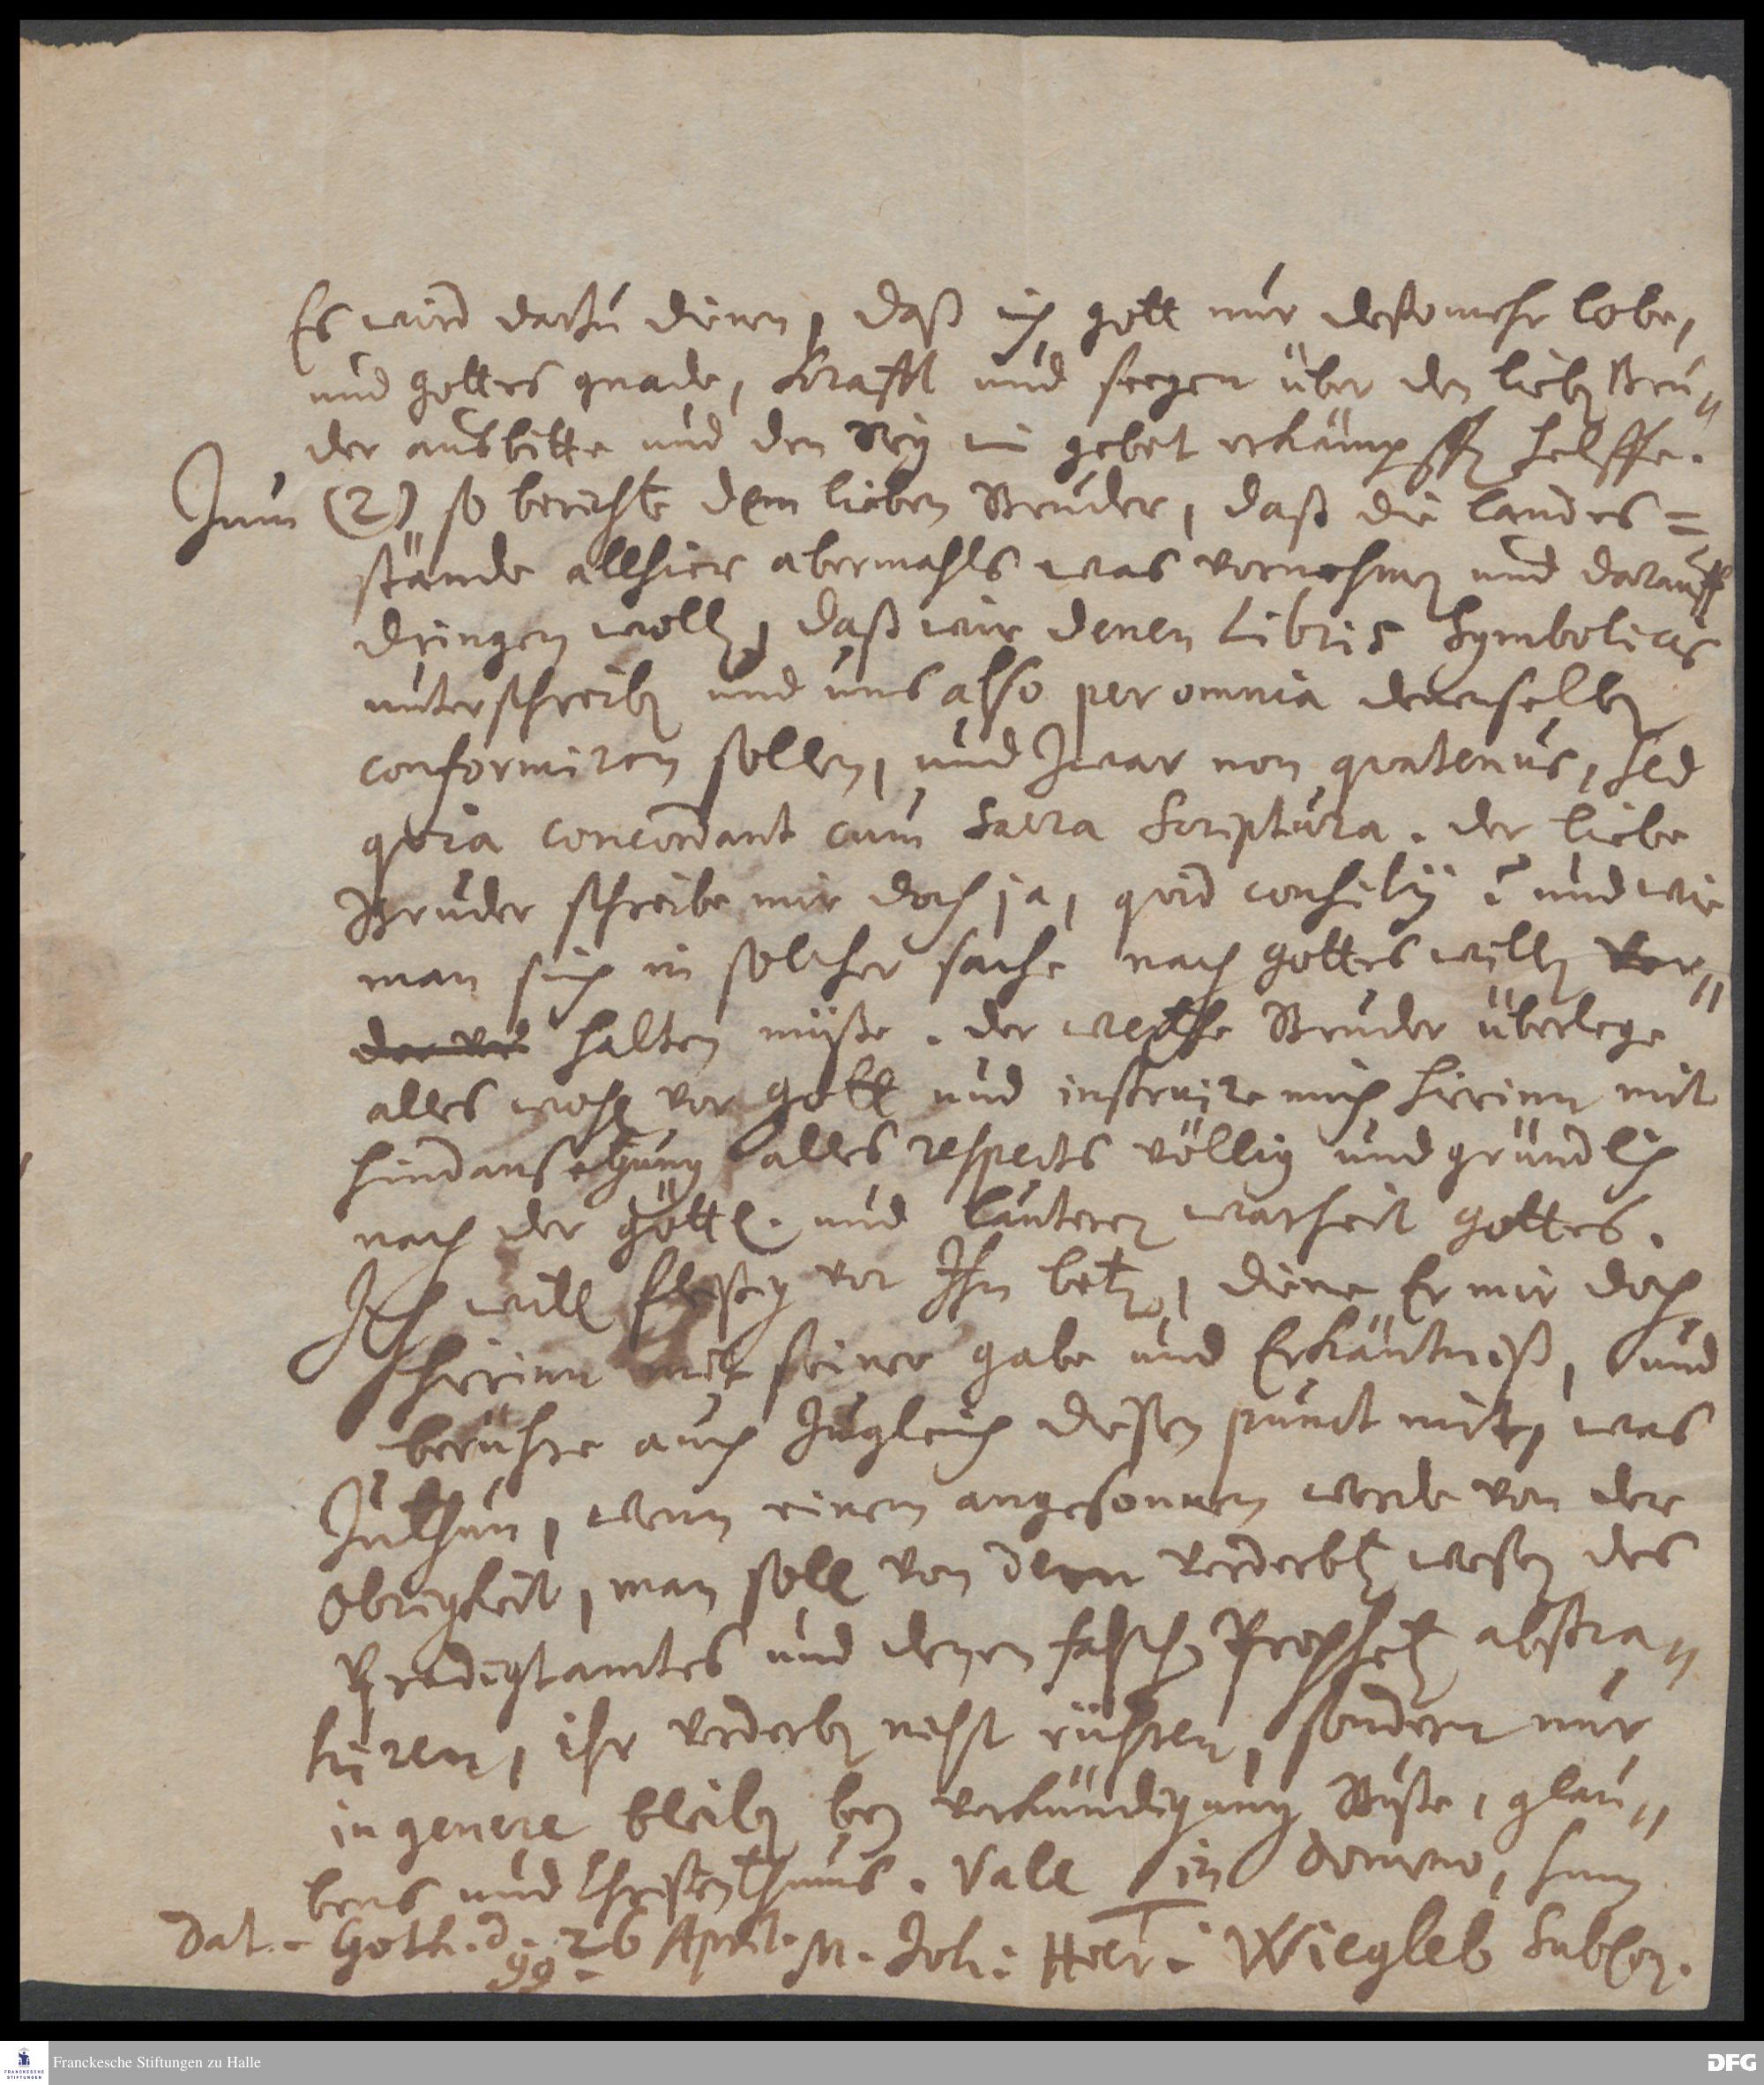 Es wird darzu dienen, daß ich gott nur destomehr lobe,
und gottes gnade, Krafft und seegen über den lieben Bru„
der ausbitte und den Sieg im gebet erkämpffen helffe.
Zum (2) so berichte dem lieben Bruder, daß die landes=
stände allhier abermahls was vornehmen und darauff
dringen wollen, daß wir denen Libris Symbolicis
unterschreiben und uns also per omnia denenselben
conformiren sollen, und zwar non quatenus, sed
quia concordant cum Sacra Scriptura. der liebe
Bruder schreibe mir doch ja, quid consilij? und wie
man sich in solcher sache nach gottes willen ver„
halten müße. der werthe Bruder überlege
alles wohl vor gott und instruire mich hierinn mit
hindansetzung alles respects völlig und gründlich
nach der göttl. und lauteren warheit gottes.
Ich will fleißig vor Ihn beten, diene Er mir doch
hierinn mit seiner gabe und Erkäntniß, und
berühre auch zugleich diesen punct mit, was
zuthun, wenn einem angesonnen werde von der
Obrigkeit, man soll von dem verderbten wesen des
Predigtamtes und denen falschen Propheten abstra„
hiren, ihr verderben nicht rühren, sondern nur
in genere bleiben bey verkündigung Buße, glau„
bens und Christenthums. Vale in domino, sum
Dat. Goth. d. 26 April. M. Joh: Hier: Wiegleb SubCon.
99.
Franckesche Stiftungen zu Halle
FRANCKESCHE STIFTUNGEN
DFG